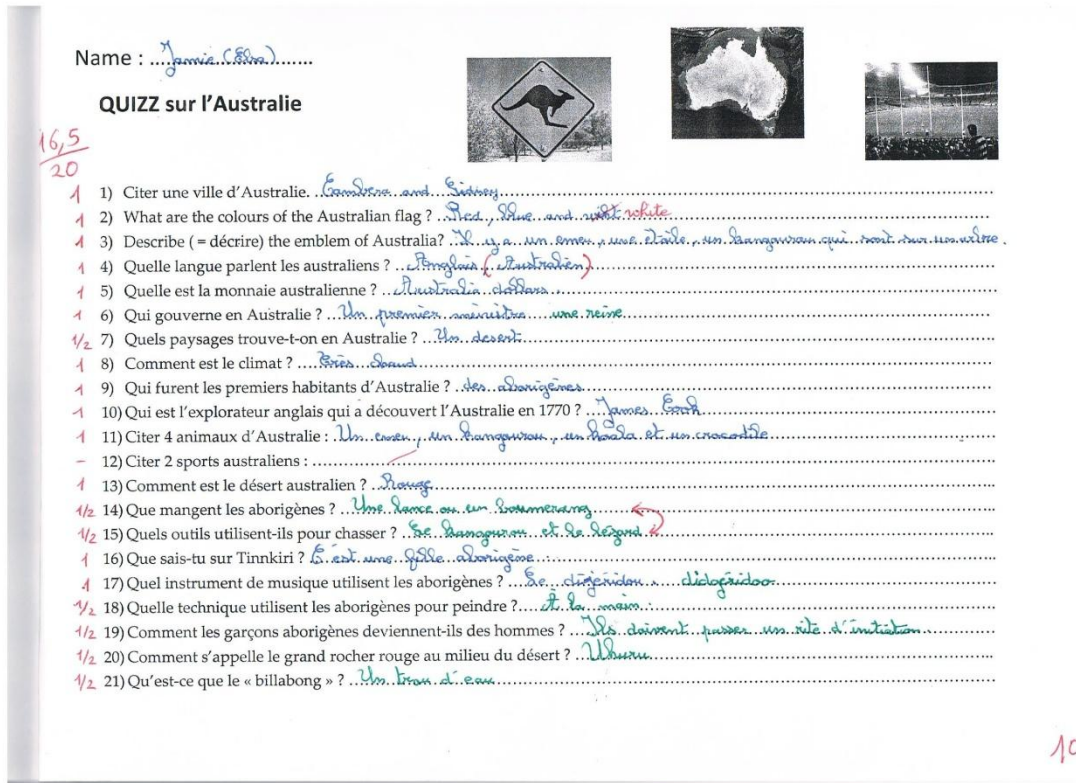 Name : ....Jamie (Elsa).......
QUIZZ sur l'Australie
16,5
20
1 1) Citer une ville d'Australie. Cambera and Sidney
1 2) What are the colours of the Australian flag ? Red, blue and white
1 3) Describe ( = décrire) the emblem of Australia? Il y a un emeu, une étoile, un kangourou qui sont sur un arbre.
1 4) Quelle langue parlent les australiens ? Anglais (Australien)
1 5) Quelle est la monnaie australienne ? Australia dollars.
1 6) Qui gouverne en Australie ? Un premier ministre une reine
1/2 7) Quels paysages trouve-t-on en Australie ? Un desert
1 8) Comment est le climat ? Très chaud
1 9) Qui furent les premiers habitants d'Australie ? des aborigènes
1 10) Qui est l'explorateur anglais qui a découvert l'Australie en 1770 ? James Cook
1 11) Citer 4 animaux d'Australie : Un emeu, un kangourou, un koala et un crocodile
– 12) Citer 2 sports australiens :
1 13) Comment est le désert australien ? Rouge
1/2 14) Que mangent les aborigènes ? Une lance ou un boumerang
1/2 15) Quels outils utilisent-ils pour chasser ? Le kangourou et le lézard
1 16) Que sais-tu sur Tinnkiri ? C'est une fille aborigène.
1 17) Quel instrument de musique utilisent les aborigènes ? Le digéridou. didgéridoo
1/2 18) Quelle technique utilisent les aborigènes pour peindre ? À la main.
1/2 19) Comment les garçons aborigènes deviennent-ils des hommes ? Ils doivent passer un rite d'initiation.
1/2 20) Comment s'appelle le grand rocher rouge au milieu du désert ? Uhuru
1/2 21) Qu'est-ce que le « billabong » ? Un trou d'eau